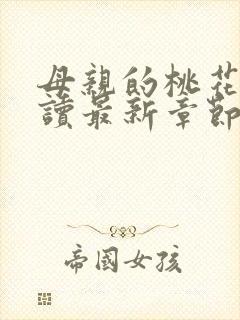 母親的桃花
讀最新章節
帝國女孩